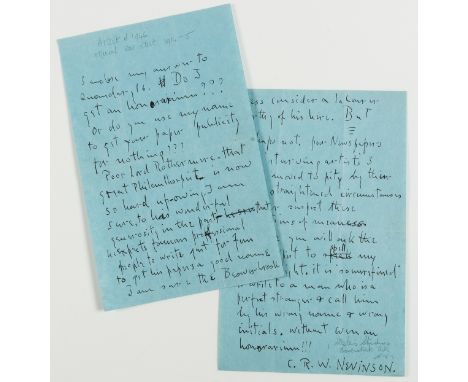 Artist d 1946
official war artist
I enclose my answer to
Do I
get an honorarium???
Or do you use my name
to get your paper publicity
for nothing???
Poor Lord Rothermere. That
great Philanthropist is now
so hard up owing I am
sure, to his wonderful
generosity in the past that
he expects famous professional
people to write just for fun
to get his papers a good name
I am sure the Beaverbrook
consider a labourer
of his hire. But
not. for Newspapers
artists
to pity by their
straightened circumstances
these
of
you will ask the
to spell my
right, it is so misinformed
to write to a man who is a
perfect stranger & call him
by his wrong name & wrong
initials. without even an
honorarium!!!
C. R. W. NEVINSON.